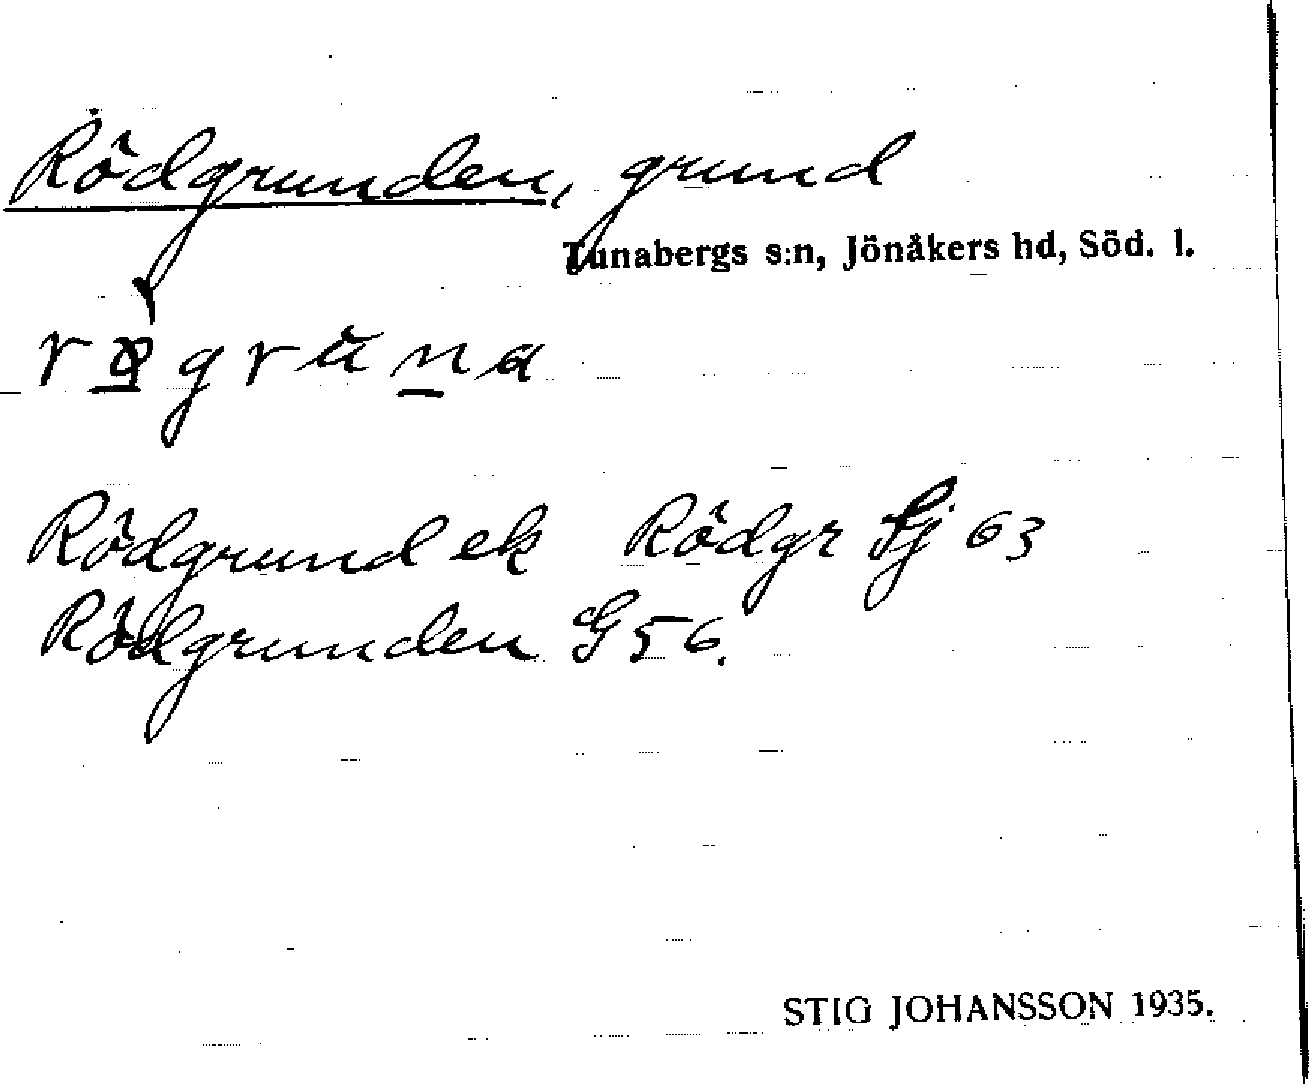 Rödgrunden, grund
Tunabergs s:n, Jönåkers hd, Söd. l.
røgruna
Rödgrund ek Rödgr Sj 63
Rödgrunden G 56.
STIG JOHANSSON 1935.